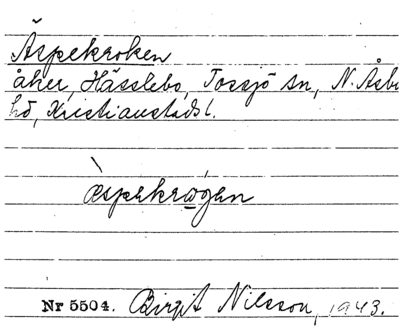 Äspekroken
åker, Hässlebo, Tossjö sn, N. Åsbo
hd, Kristianstads l.
`æspekrogen
Nr 5504. Birgit Nilsson, 1943.